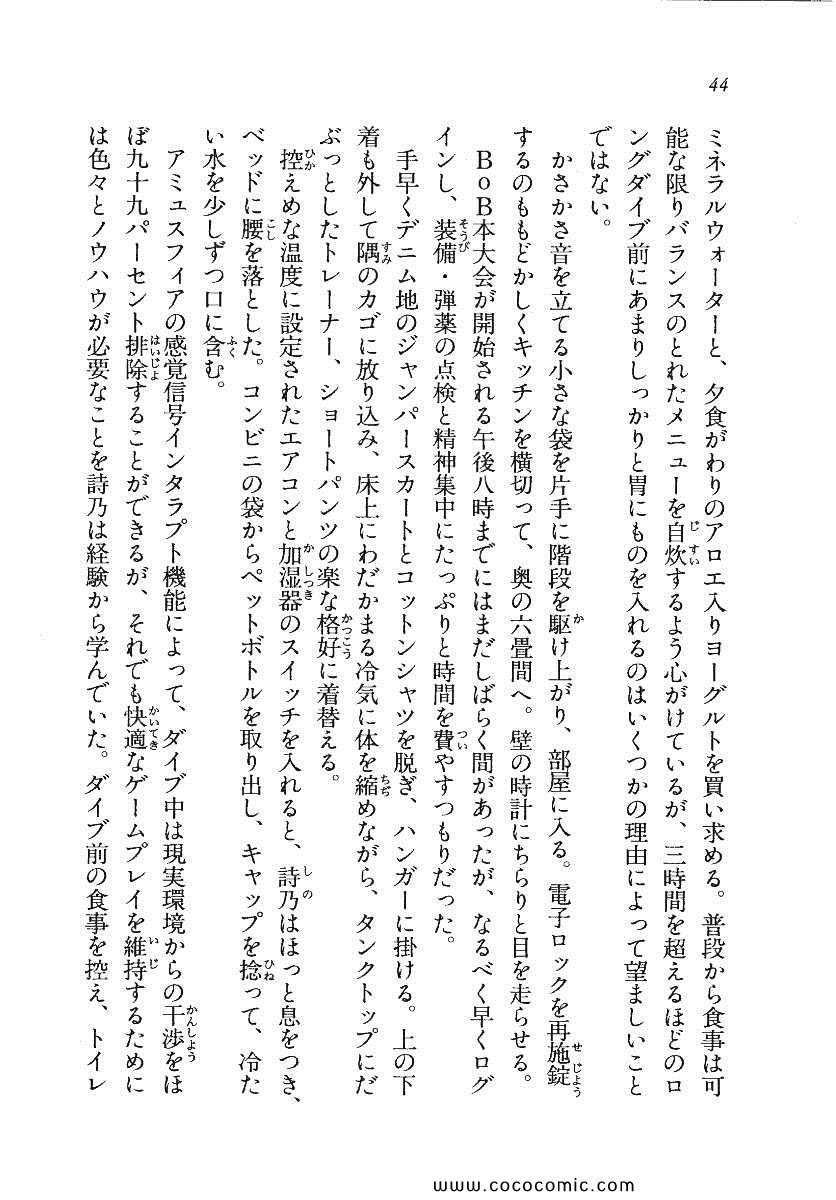 44
ミネラルウォーターと、夕食がわりのアロエ入りヨーグルトを買い求める。普段から食事は可
能な限りバランスのとれたメニューを自炊するよう心がけているが、三時間を超えるほどのロ
ングダイブ前にあまりしっかりと胃にものを入れるのはいくつかの理由によって望ましいこと
ではない。
かさかさ音を立てる小さな袋を片手に階段を駆け上がり、部屋に入る。電子ロックを再施錠
するのももどかしくキッチンを横切って、奥の六畳間へ。壁の時計にちらりと目を走らせる。
BoB本大会が開始される午後八時までにはまだしばらく間があったが、なるべく早くログ
インし、装備・弾薬の点検と精神集中にたっぷりと時間を費やすつもりだった。
手早くデニム地のジャンパースカートとコットンシャツを脱ぎ、ハンガーに掛ける。上の下
着も外して隅のカゴに放り込み、床上にわだかまる冷気に体を縮めながら、タンクトップにだ
ぶっとしたトレーナー、ショートパンツの楽な格好に着替える。
控えめな温度に設定されたエアコンと加湿器のスイッチを入れると、詩乃はほっと息をつき、
ベッドに腰を落とした。コンビニの袋からペットボトルを取り出し、キャップを捻って、冷た
い水を少しずつ口に含む。
アミュスフィアの感覚信号インタラプト機能によって、ダイブ中は現実環境からの干渉をほ
ぼ九十九パーセント排除することができるが、それでも快適なゲームプレイを維持するために
は色々とノウハウが必要なことを詩乃は経験から学んでいた。ダイブ前の食事を控え、トイレ
www.cococomic.com